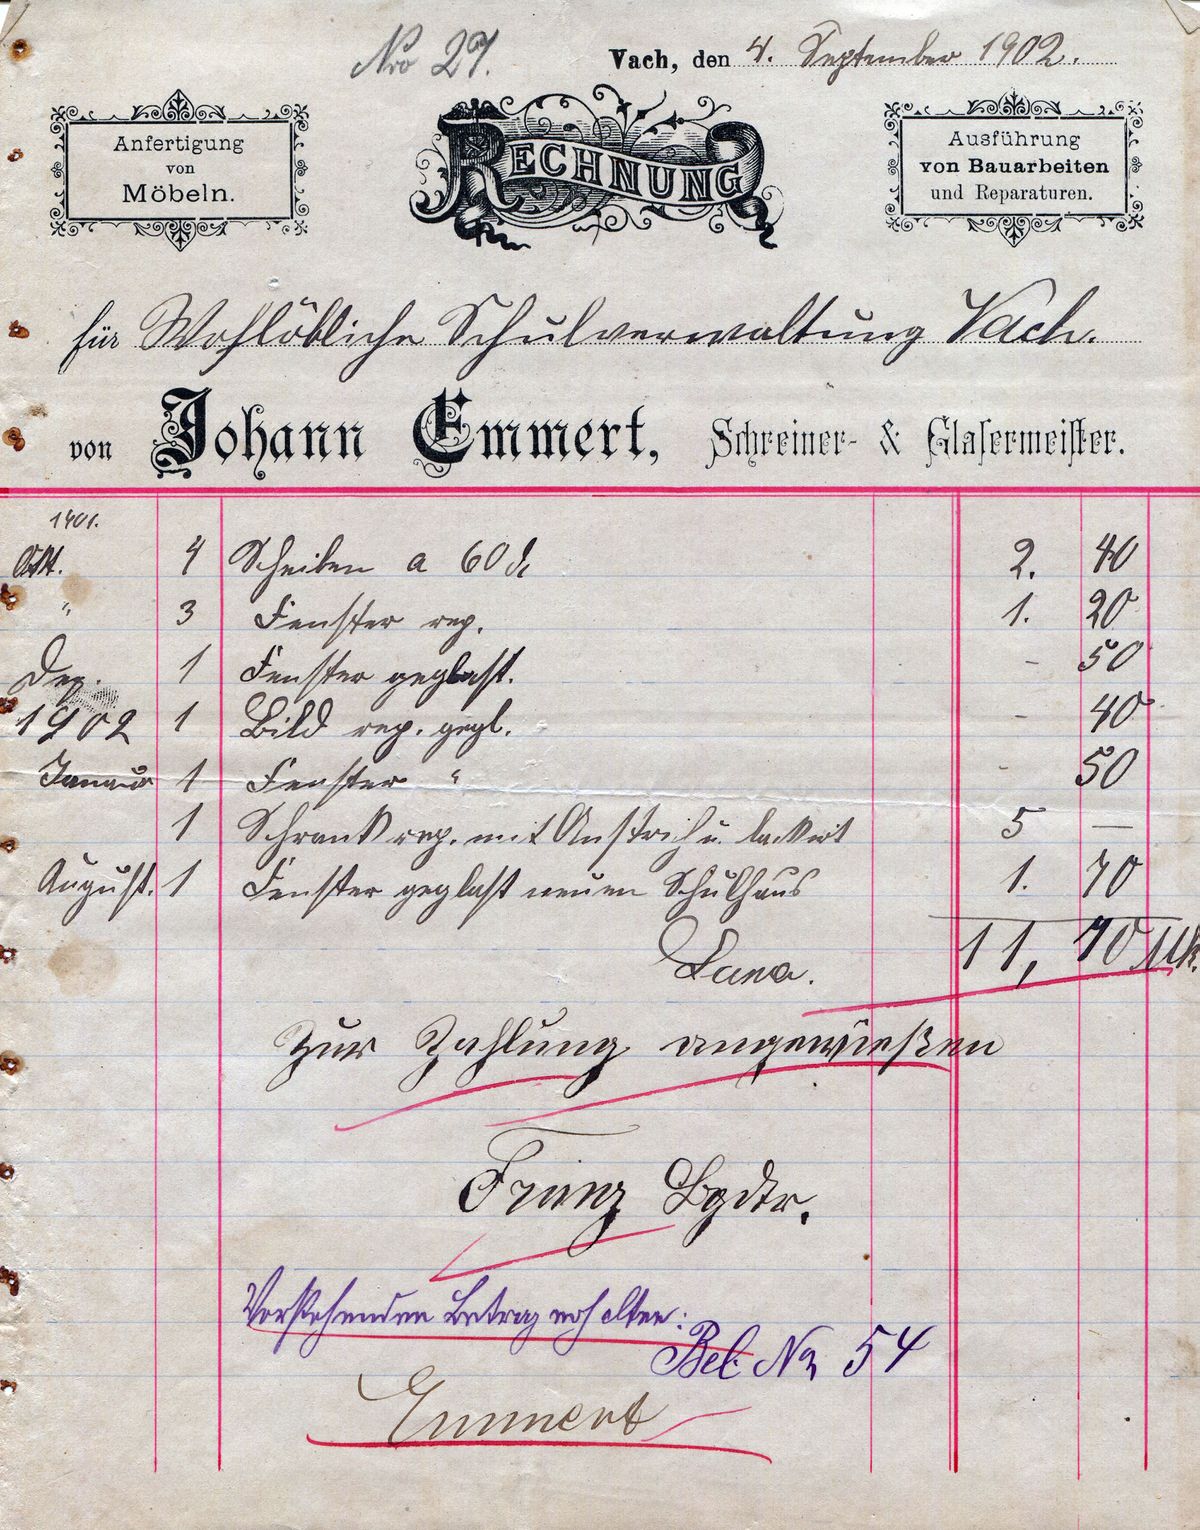 Nro 27.
Vach, den 4. September 1902.
Anfertigung
von
Möbeln.
RECHNUNG
Ausführung
von Bauarbeiten
und Reparaturen.
für Wohllöbliche Schulverwaltung Vach.
von Johann Emmert, Schreiner- & Glasermeister.
1901.
Okt. 4 Scheiben a 60 d 2. 40
" 3 Fenster rep. 1. 20
Dez. 1 Fenster geglast. - 50
1902 1 Bild rep. gegl. - 40
Januar 1 Fenster " - 50
1 Schrank rep. mit Anstrich u. lackirt 5 —
August. 1 Fenster geglast neuen Schulhaus 1. 70
11, 70 Mk.
Zur Zahlung angewießen
Vorstehenden Betrag erhalten:
Bel. No 54
Emmert